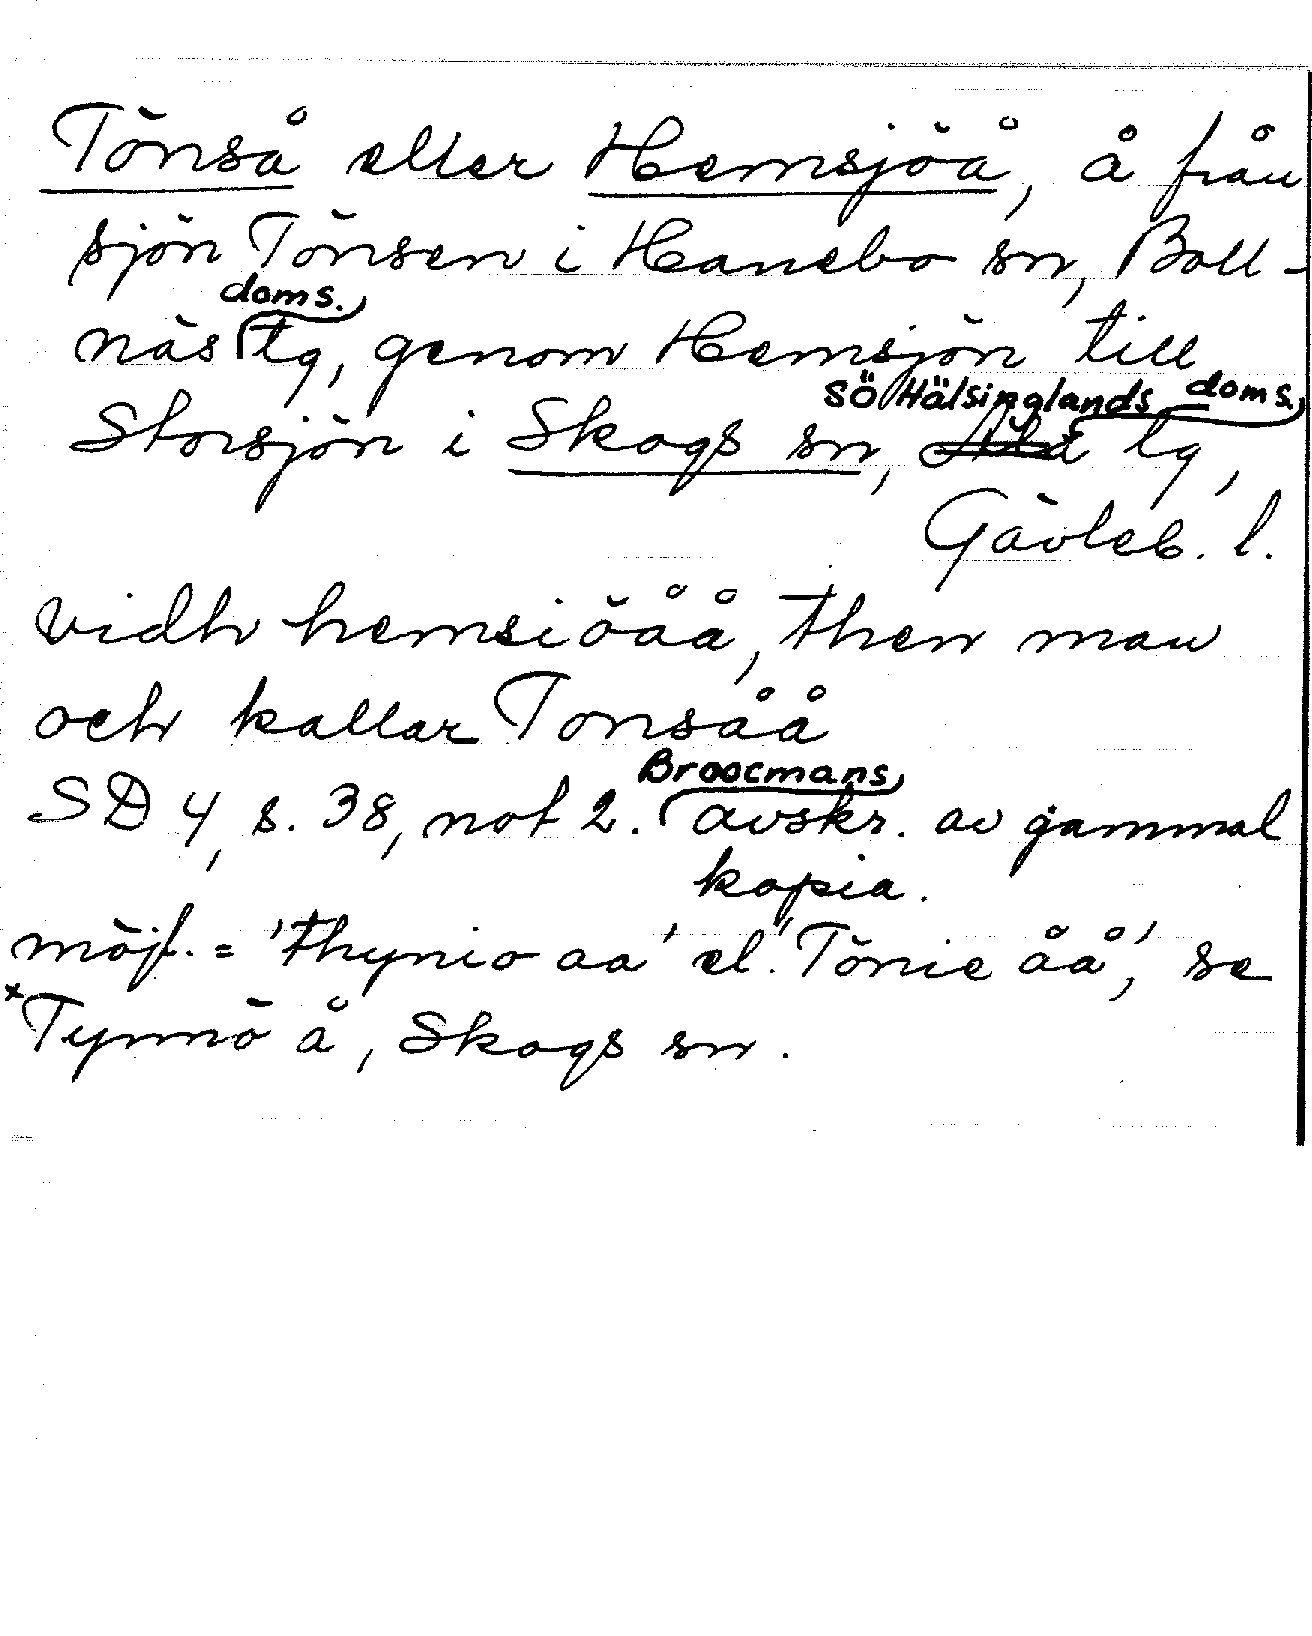 Tönså eller Hemsjöå, å från
sjön Tönsen i Hanebo sn, Boll-
doms.
näs tg, genom Hemsjön till
SÖ Hälsinglands doms.
Storsjön i Skogs sn, tg,
Gävleb. l.
vidh hemsiöåå, then man
och kallar Tonsåå
Broocmans
SD 4, s. 38, not 2. avskr. av gammal
kopia.
möjl. = 'thynio aa' el. 'Tönie åå', se
*Tynnö å, Skogs sn.